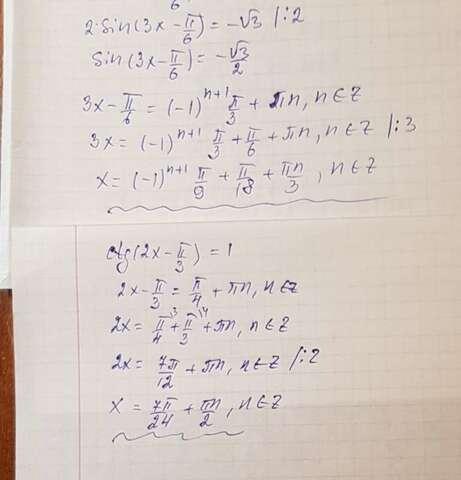 6
2·Sin(3x - π/6) = -√3 /:2
Sin(3x - π/6) = -√3/2
3x - π/6 = (-1)^(n+1) π/3 + πn, n∈Z
3x = (-1)^(n+1) π/3 + π/6 + πn, n∈Z /:3
x = (-1)^(n+1) π/9 + π/18 + πn/3, n∈Z
ctg(2x - π/3) = 1
2x - π/3 = π/4 + πn, n∈Z
2x = π/4 \3 + π/3 \4 + πn, n∈Z
2x = 7π/12 + πn, n∈Z /:2
x = 7π/24 + πn/2, n∈Z